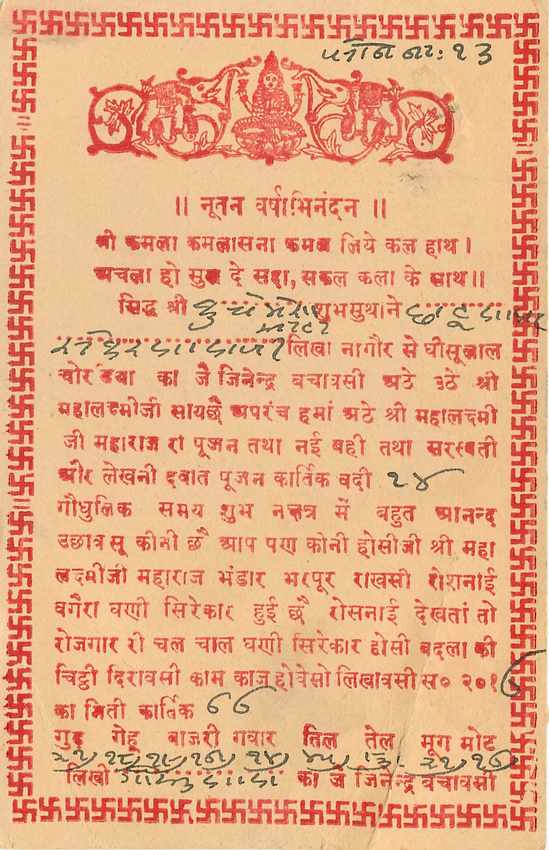 फोन नं: १३
॥ नूतन वर्षाभिनंदन ॥
श्री कमला कमलासना कमल लिये कल हाथ ।
अचला हो सुख दे सदा, सकल कला के साथ ॥
सिद्ध श्री शुभसुथाने
लिखा नागौर से घीसूलाल
चोरड्या का जै जिनेन्द्र बचावसी अठे उठे श्री
महालक्ष्मीजी सायछै अपरंच हमां अठे श्री महालक्ष्मी
जी महाराज रो पूजन तथा नई बही तथा सरस्वती
और लेखनी दवात पूजन कार्तिक वदी १४
गौधुलिक समय शुभ नक्षत्र में बहुत आनन्द
उछाव सू कीनी छै आप पण कीनी होसीजी श्री महा
लक्ष्मीजी महाराज भंडार भरपूर राखसी रोशनाई
वगैरा घणी सिरेकार हुई छै रोसनाई देखतां तो
रोजगार री चल चाल घणी सिरेकार होसी बदला की
चिट्ठी दिरावसी काम काज होवेसो लिखावसी स० २०१
का मिती कार्तिक
गुड गेहू बाजरी गवार तिल तेल मूग मोठ
लिखी का जै जिनेन्द्र बचावसी